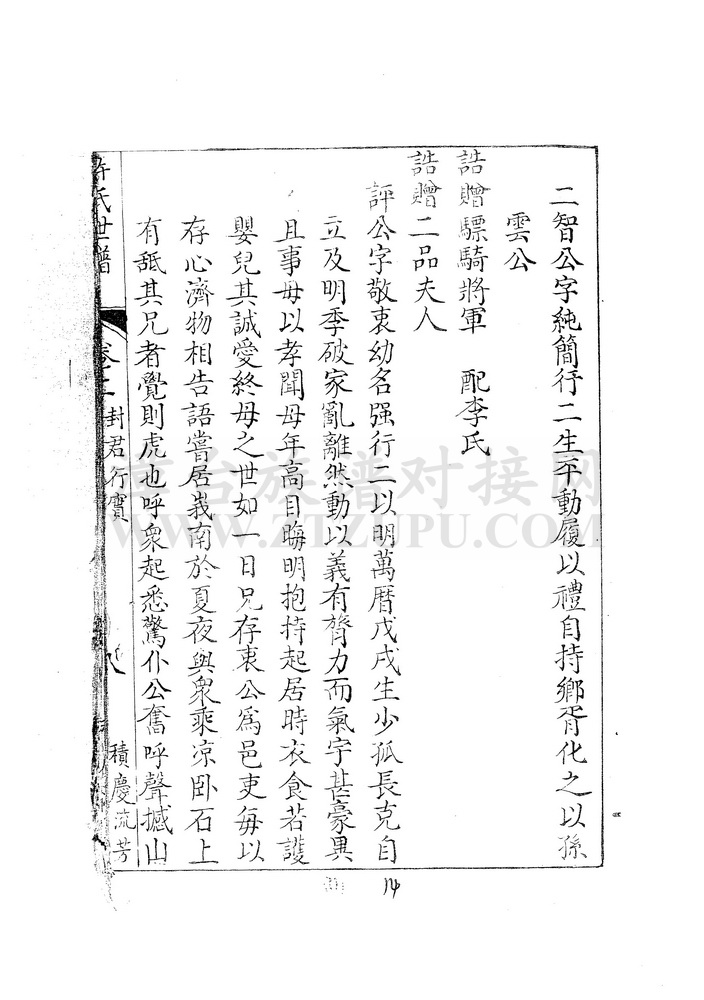 二智公字純簡行二生平動履以禮自持鄉胥化之以孫
雲公
誥贈驃騎將軍 配李氏
誥贈二品夫人
評公字敬衷幼名强行二以明萬曆戊戌生少孤長克自
立及明季破家亂離然動以義有膂力而氣宇甚豪異
且事母以孝聞母年高目晦明抱持起居時衣食若護
嬰兒其誠愛終母之世如一日兄存衷公為邑吏每以
存心濟物相告語嘗居峩南於夏夜與衆乘凉卧石上
有舐其兄者覺則虎也呼衆起悉驚仆公奮呼聲撼山
許氏世譜
封君行實
積慶流芳
14
WWW.ZTZUPU.COM
族譜对接网